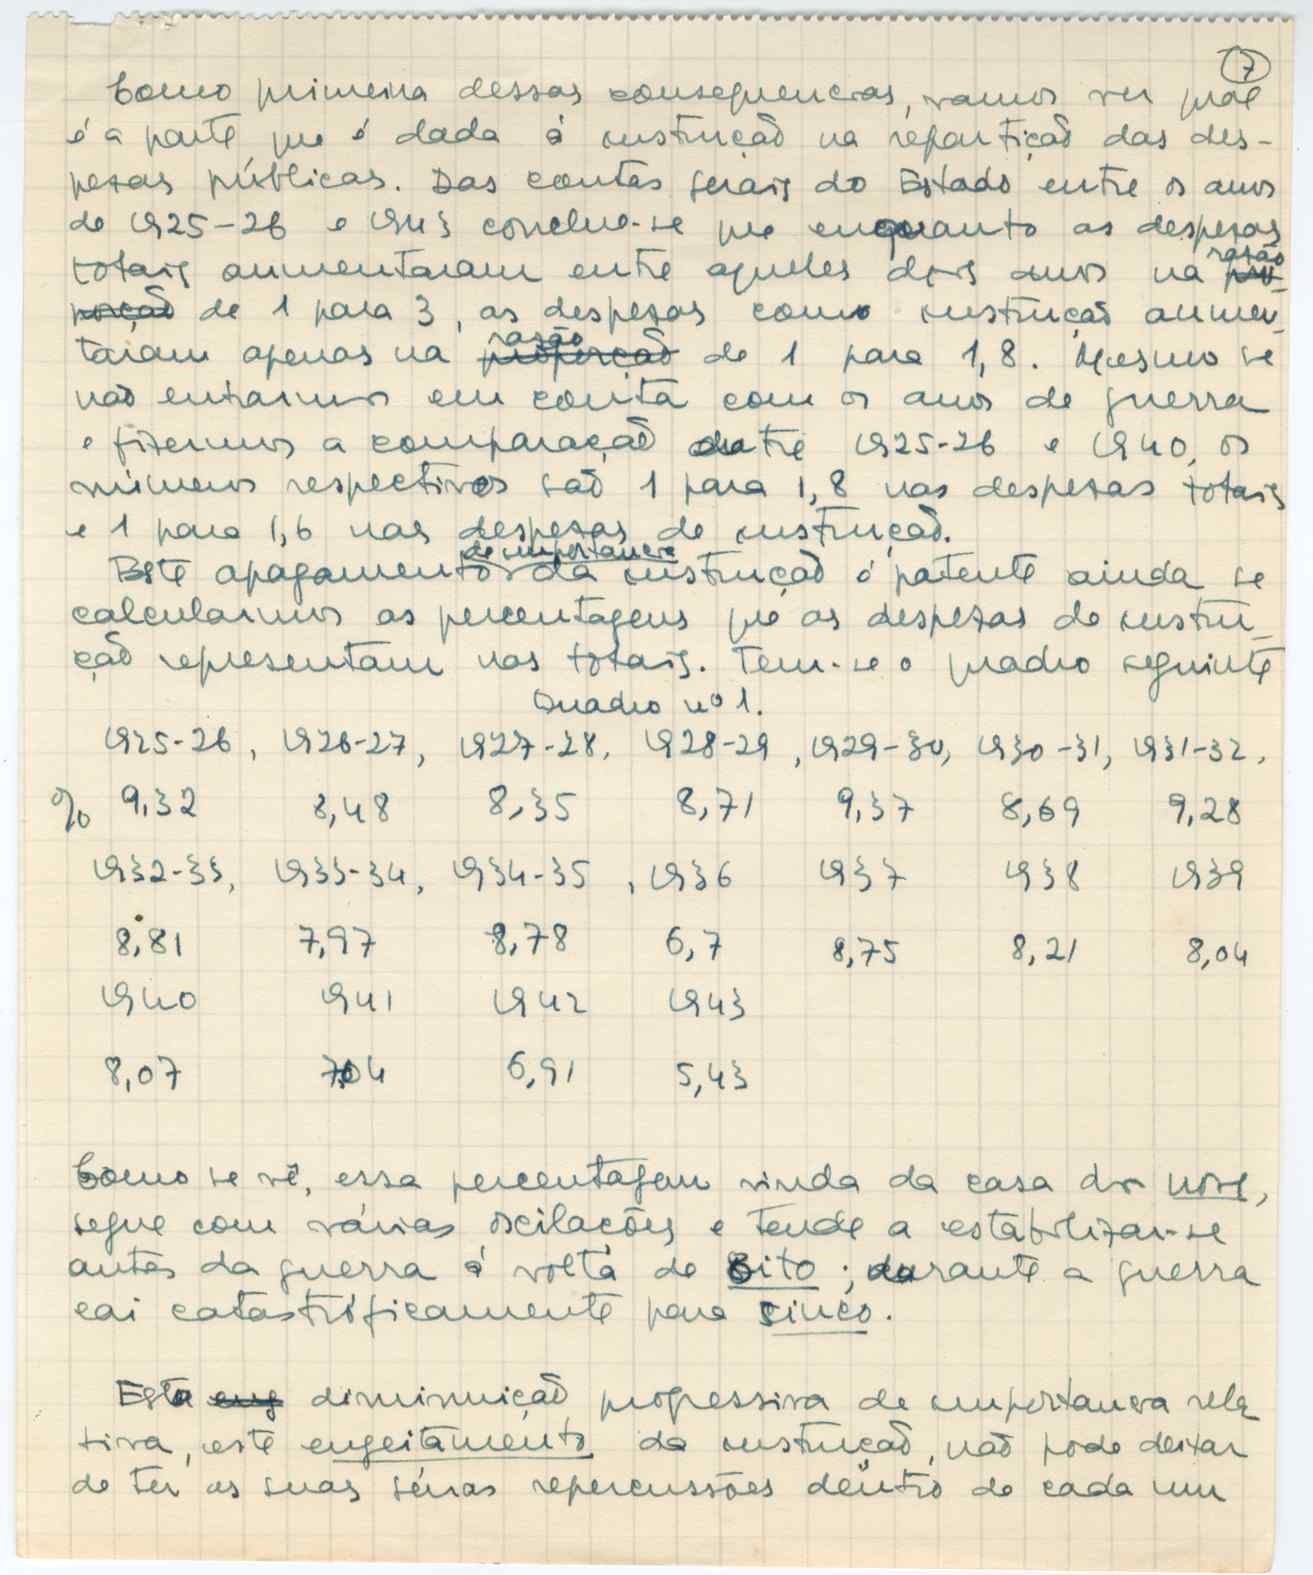 7
Como primeira dessas consequencias, vamos ver qual
é a parte que é dada á instrução na repartição das des-
pezas públicas. Das contas gerais do Estado entre os anos
de 1925-26 e 1943 conclue-se que enquanto as despezas
totais aumentaram entre aqueles dois anos na razão pro-
porção de 1 para 3, as despezas com instrução aumen-
taram apenas na razão proporção de 1 para 1,8. Mesmo se
não entrarmos em conta com os anos de guerra
e fizermos a comparação entre 1925-26 e 1940, os
números respectivos são 1 para 1,8 nas despezas totais
e 1 para 1,6 nas despezas de instrução.
Este apagamento de importancia da instrução é patente ainda se
calcularmos as percentagens que as despezas de instru-
ção representam nos totais. Tem-se o quadro seguinte
Quadro nº 1.
1925-26, 1926-27, 1927-28, 1928-29, 1929-30, 1930-31, 1931-32,
% 9,32 8,48 8,35 8,71 9,37 8,69 9,28
1932-33, 1933-34, 1934-35, 1936 1937 1938 1939
8,81 7,97 8,78 6,7 8,75 8,21 8,04
1940 1941 1942 1943
8,07 7,04 6,91 5,43
Como se vê, essa percentagem vinda da casa dos nove,
segue com várias oscilações e tende a estabilizar-se
antes da guerra á volta de oito; durante a guerra
cai catastróficamente para cinco.
Esta eng diminuição progressiva de importancia rela
tiva, este engeitamento da instrução, não pode deixar
de ter as suas sérias repercussões dentro de cada um